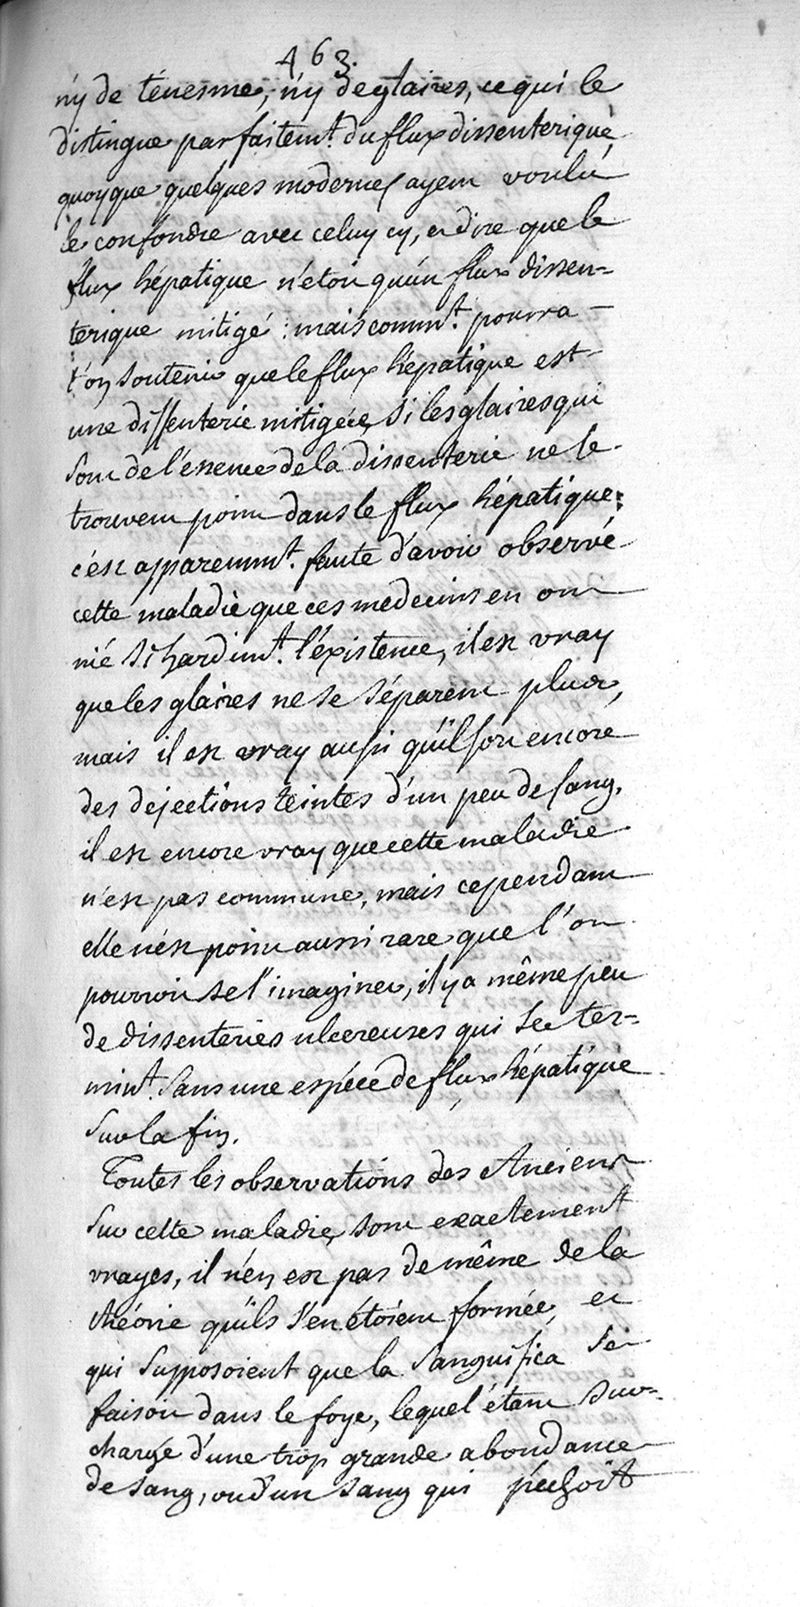 463.
n'y de ténesme, n'y de glaires, ce qui le
distingue parfaitemt. du flux dissenterique,
quoyque quelques modernes ayent voulu
le confondre avec celuy cy, et dire que le
flux hépatique n'etoit qu'un flux dissen=
terique mitigé : mais commt. pourra-
t'on soutenir que le flux hépatique est
une dissenterie mitigée, si les glaires qui
sont de l'essence de la dissenterie ne se
trouvent point dans le flux hépatique:
c'est apparemmt. faute d'avoir observé
cette maladie que ces medecins en ont
nié si hardimt. l'éxistence, il est vray
que les glaires ne se séparent plus,
mais il est vray aussi qu'il sort encore
des dejections teintes d'un peu de sang,
il est encore vray que cette maladie
n'est pas commune, mais cependant
elle n'est point aussi rare que l'on
pourroit se l'imaginer, il y a même peu
de dissenteries ulcereuses qui se ter=
mint. sans une espéce de flux hépatique
sur la fin.
Toutes les observations des Anciens
sur cette maladie, sont exactement
vrayes, il n'en est pas de même de la
théorie qu'ils s'en étoient formée, et
qui supposoient que la sanguifica se
faisoit dans le foye, lequel étant sur=
chargé d'une trop grande abondance
de sang, ou d'un sang qui péchoit